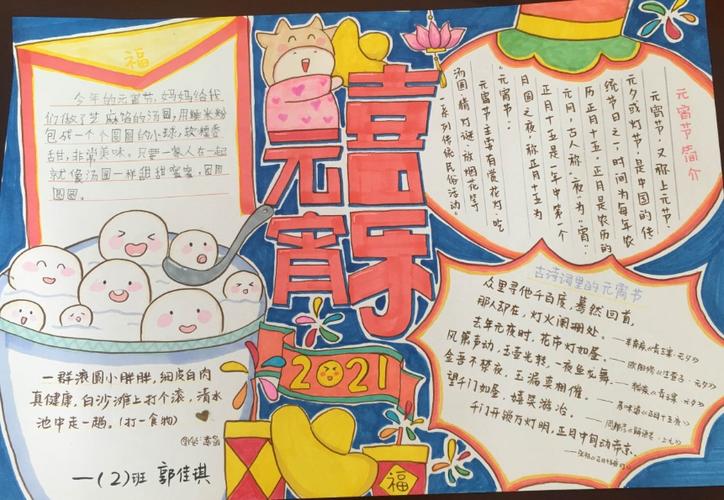 福
今年的元宵节,妈妈给我
们做了芝麻馅的汤圆,用糯米粉
包成一个个圆圆的小球,软糯香
甜,非常美味。只要一家人在一起
就像汤圆一样甜甜蜜蜜,团团
圆圆。
喜乐
元宵
2021
元宵节简介
元宵节,又称上元节、
元夕或灯节,是中国的传
统节日之一,时间为每年农
历正月十五。正月是农历的
元月,古人称"夜"为"宵",
正月十五是一年中第一个
月圆之夜,称正月十五为
"元宵节"。
元宵节主要有赏花灯、吃
汤圆、猜灯谜、放烟花等
一系列传统民俗活动。
古诗词里的元宵节
众里寻他千百度,蓦然回首,
那人却在,灯火阑珊处。
去年元夜时,花市灯如昼。
风箫声动,玉壶光转,一夜鱼龙舞。
金吾不禁夜,玉漏莫相催。
望千门如昼,嬉笑游冶。
千门开锁万灯明,正月中旬动帝京。
一群滚圆小胖胖,细皮白肉
真健康,白沙滩上打个滚,清水
池中走一趟。(打一食物)
一(2)班 郭佳琪
福